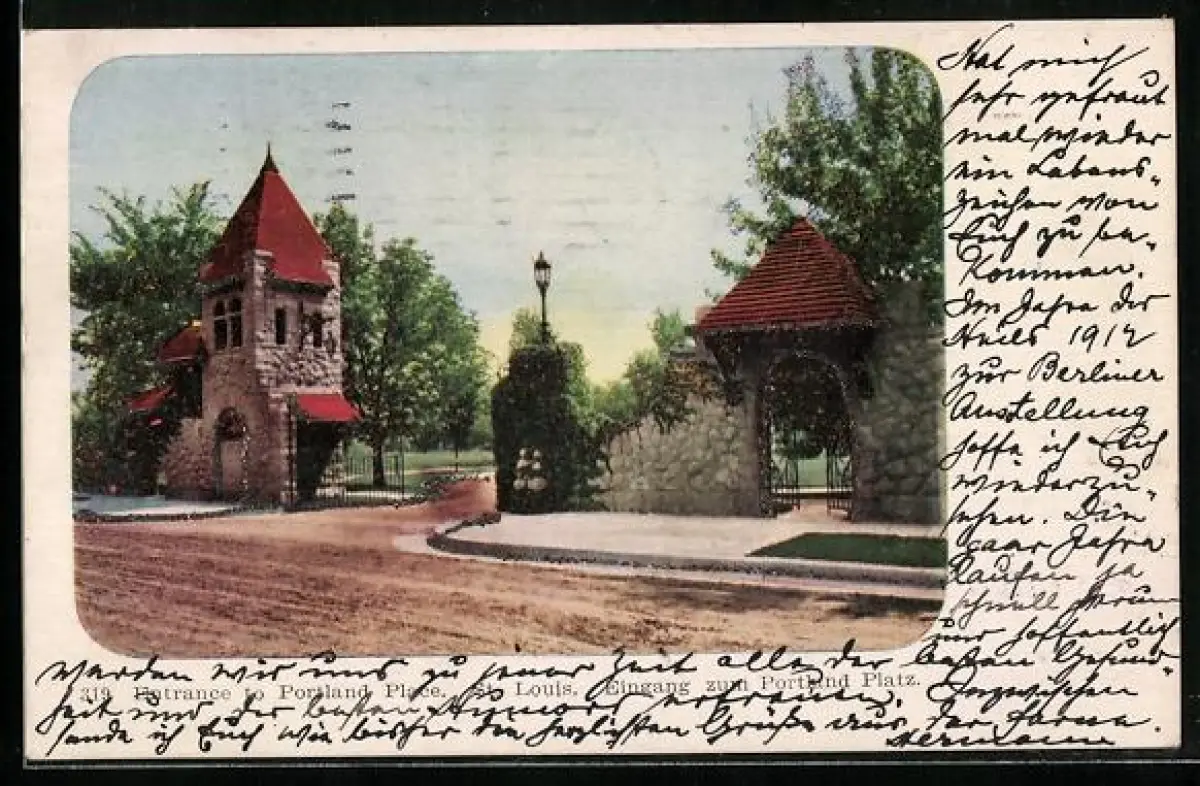 Hat mich
sehr gefraut
mal wieder
ein Lebens-
zeichen von
Euch zu be-
kommen.
Im Jahre des
Heils 1912
zur Berliner
Ausstellung
hoffe ich Euch
wiederzu-
sehen. Die
paar Jahre
laufen ja
schnell herum
und hoffentlich
werden wir uns zu jener Zeit alle der besten Gesund-
319. Entrance to Portland Place. St. Louis. Eingang zum Portland Platz.
heit und des besten Humors erfreuen. Inzwischen
sende ich Euch wie bisher die herzlichsten Grüße aus der Ferne.
Hermann